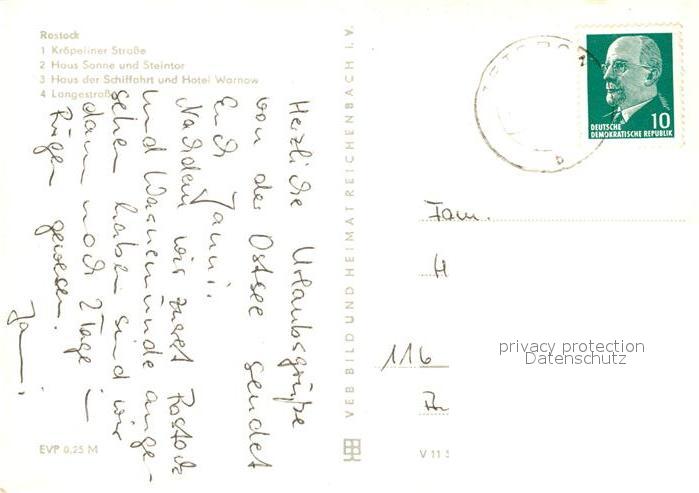 Rostock
1 Kröpeliner Straße
2 Haus Sonne und Steintor
3 Haus der Schiffahrt und Hotel Warnow
4 Langestraße
Herzliche Urlaubsgrüße
von der Ostsee sendet
Euch Janni.
Nachdem wir zuerst Rostock
und Warnemünde ange-
sehen haben sind wir
dann noch 2 Tage i
Rügen gewesen.
EVP 0,25 M
VEB BILD UND HEIMAT REICHENBACH I. V.
10
DEUTSCHE
DEMOKRATISCHE REPUBLIK
Fam.
H
privacy protection
Datenschutz
116
V 11